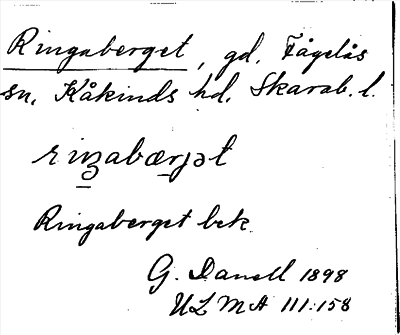 Ringaberget, gd, Fågelås
sn, Kåkinds hd, Skarab. l.
riŋabærjət
Ringaberget bek.
G. Danell 1898
ULMA 111:158